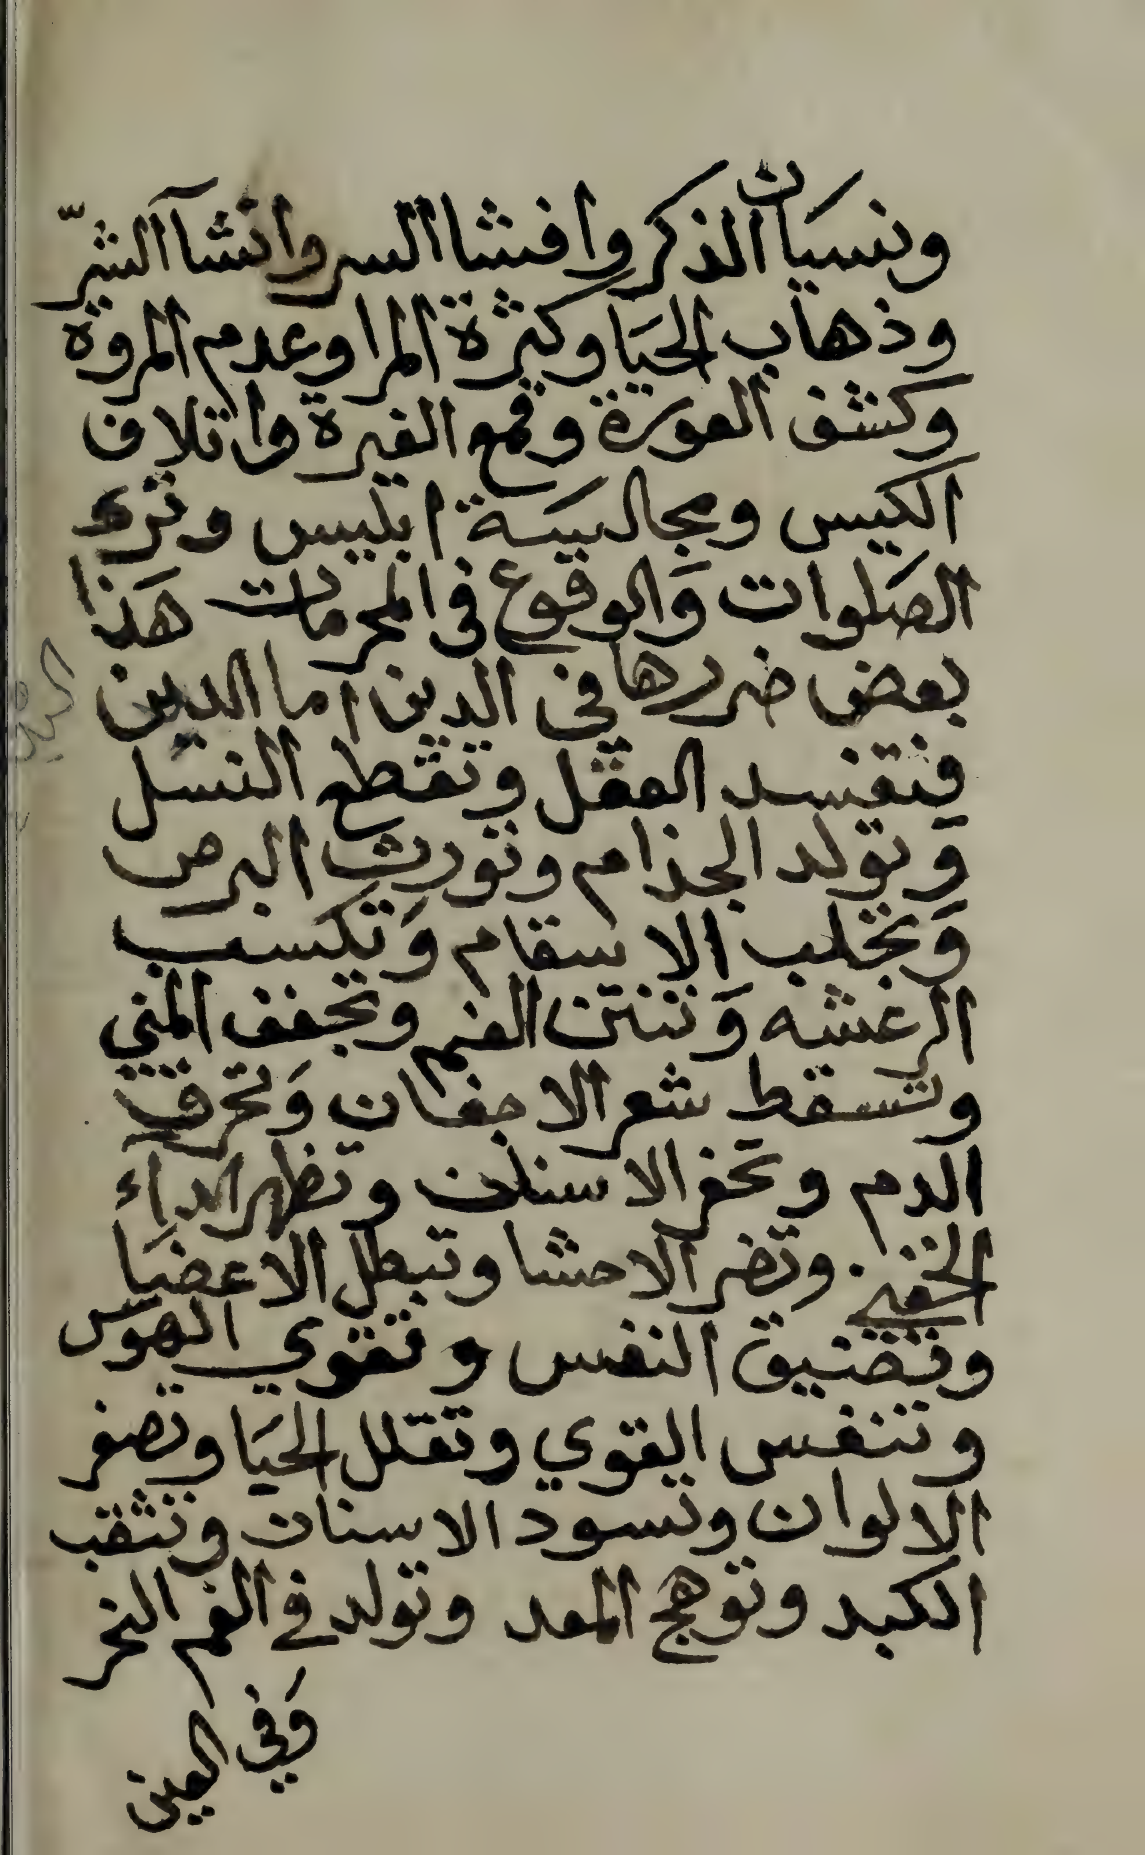 ونسيان الذكر وافشا السر وانشآ الشرّ
وذهاب الحيا وكثرة المرا وعدم المروة
وكشف العورة وقمع الغيرة واتلاف
الكيس ومجالسة ابليس وترك
الصلوات والوقوع في المحرمات هذا
بعض ضررها في الدين اما البدن
فتفسد العقل وتقطع النسل
وتولد الجذام وتورث البرص
وتجلب الاسقام وتكسب
الرعشه وتنتن الفم وتجفف المني
وتسقط شعر الاجفان وتحرق
الدم وتحفر الاسنان وتظهر الدآء
الخفي وتضر الاحشا وتبطل الاعضا
وتضيق النفس وتقوي الهوس
وتنقص القوي وتقلل الحيا وتصفر
الالوان وتسود الاسنان وتثقب
الكبد وتوهج المعد وتولد في الفم البخر
وفي العين